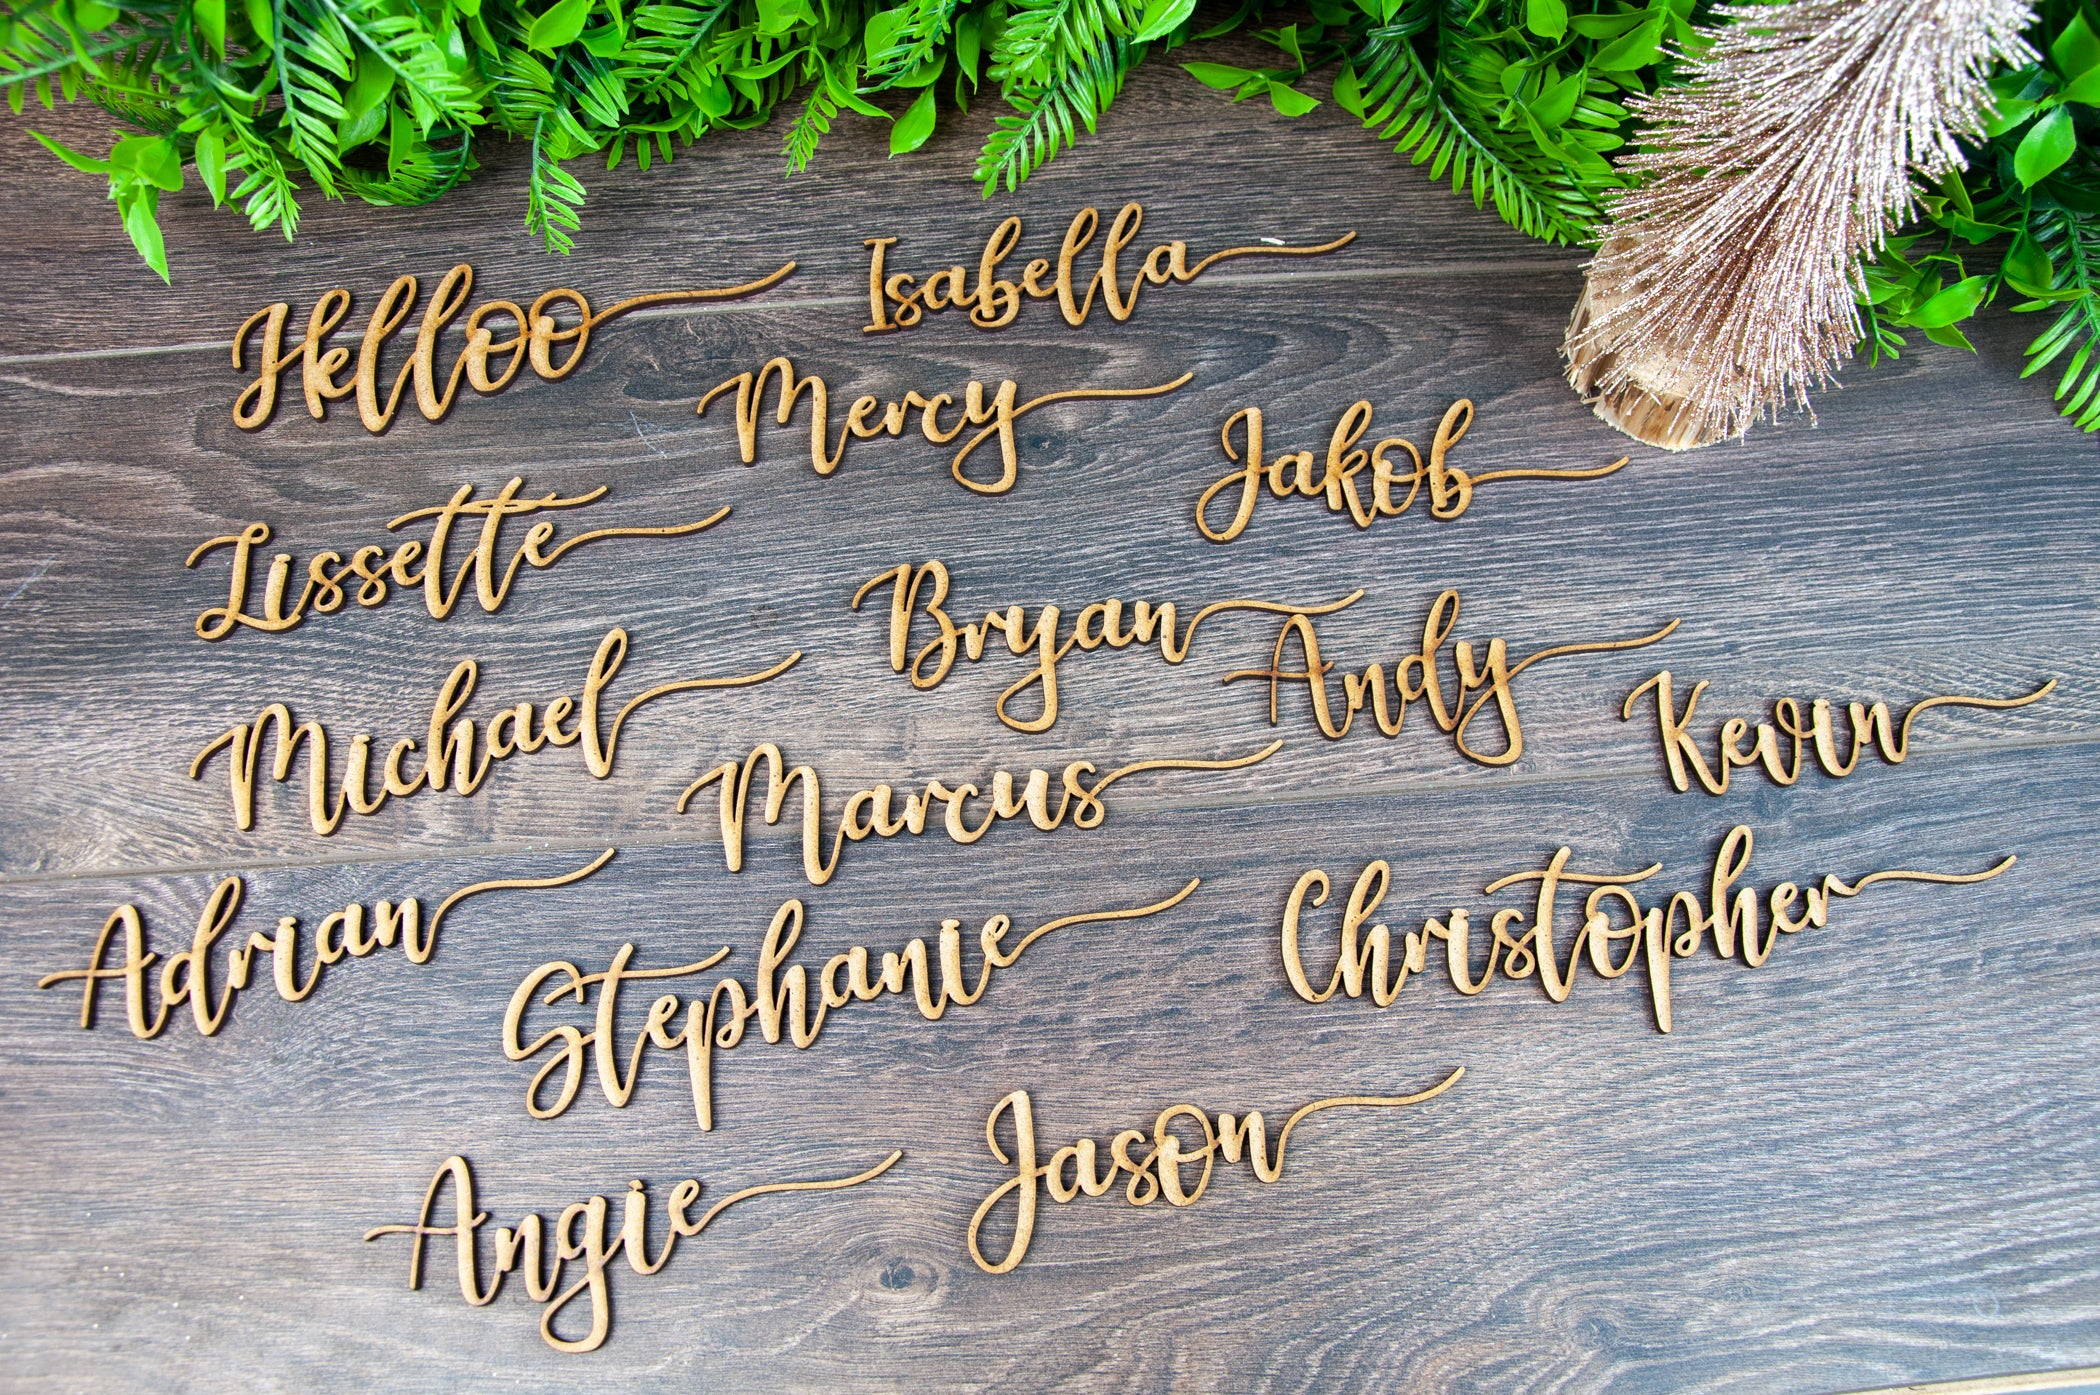 Helloo
Isabella
Mercy
Jakob
Lissette
Bryan
Andy
Michael
Marcus
Kevin
Adrian
Stephanie
Christopher
Angie
Jason